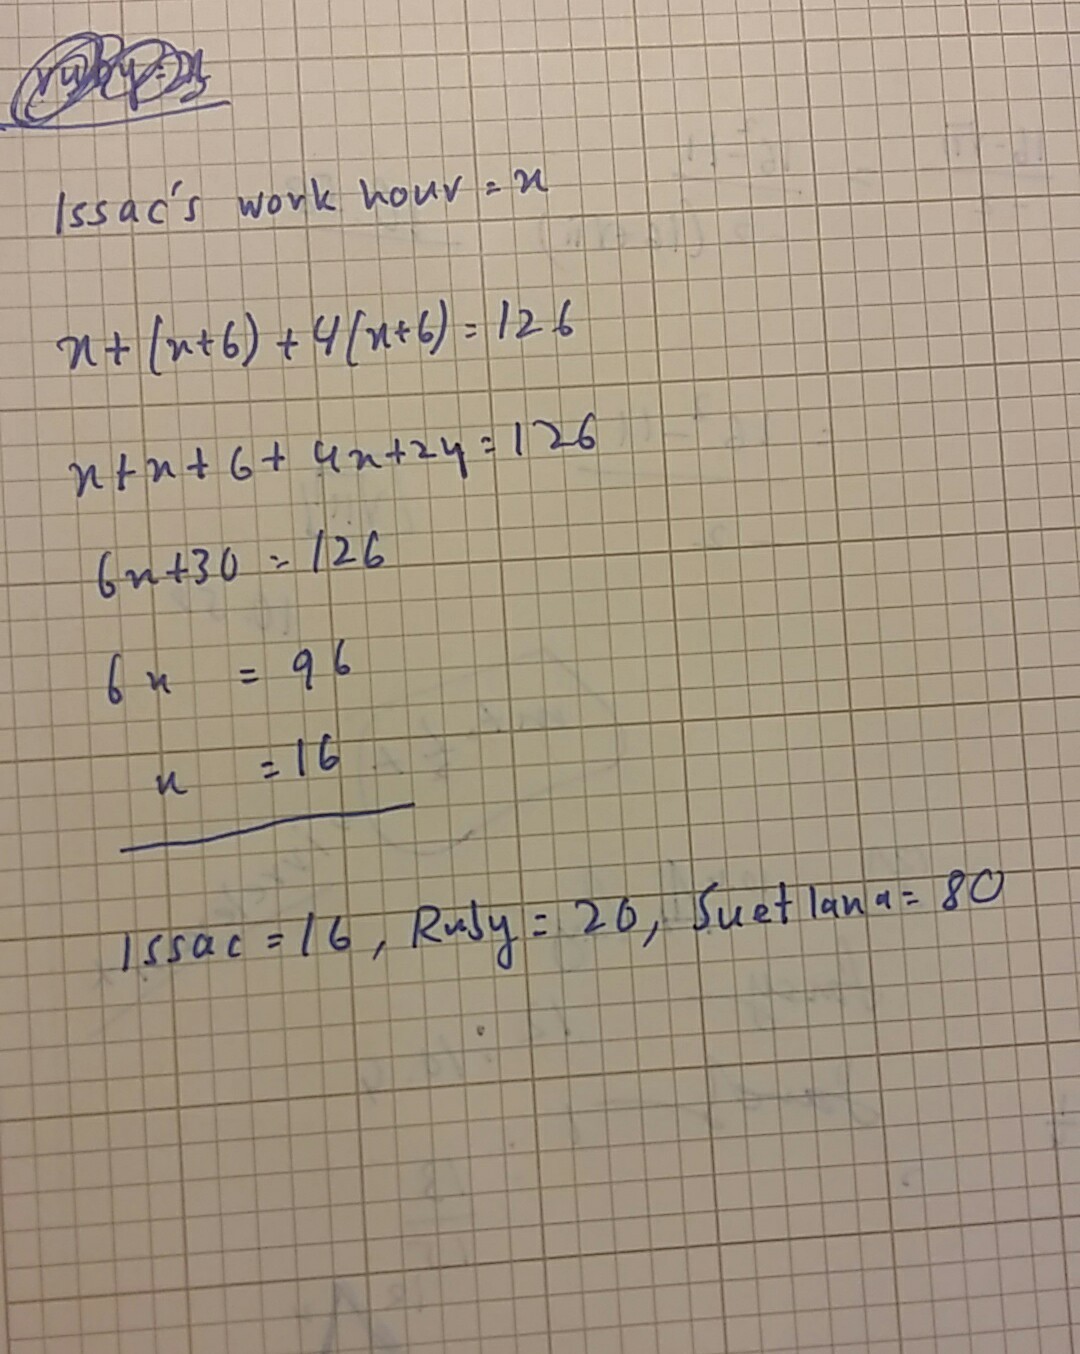 Issac's work hour = x
x + (x+6) + 4(x+6) = 126
x + x + 6 + 4x + 24 = 126
6x + 30 = 126
6x = 96
x = 16
Issac = 16, Ruby = 20, Suetlana = 80